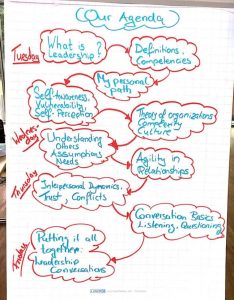 Our Agenda
Tuesday
What is
Leadership?
Definitions,
Competencies
My personal
path
Self-Awareness,
Vulnerability,
Self-Perception
Theory of organizations
Complexity
Culture
Wednes-
day
Understanding
Others
Assumptions
Needs
Agility in
Relationships
Thursday
Interpersonal Dynamics,
Trust, Conflicts
Conversation Basics
Listening, Questioning
Friday
Putting it all
together:
Leadership
Conversations